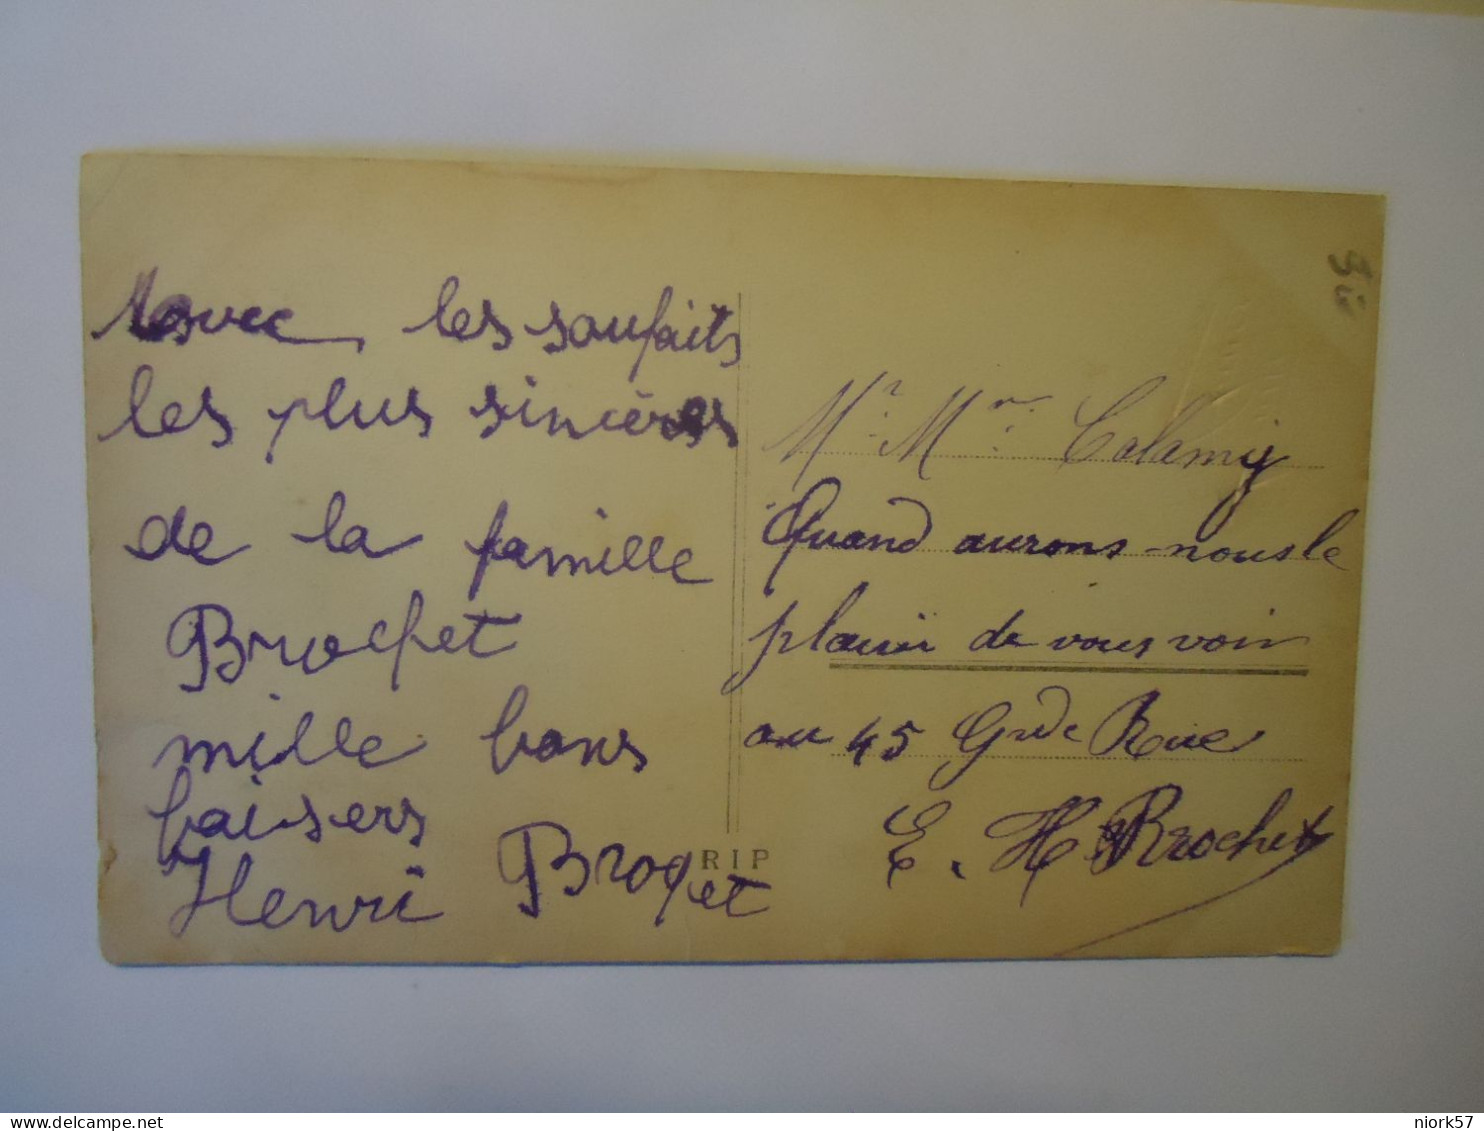 Avec les soufaits
les plus sincères
de la famille
Brochet
mille bons
baisers
Henri Broget
RIP
Mr. Mme. Calamy
Quand aurons nous le
plaisir de vous voir
au 45 Grde Rue
E. H Brochet
niork57